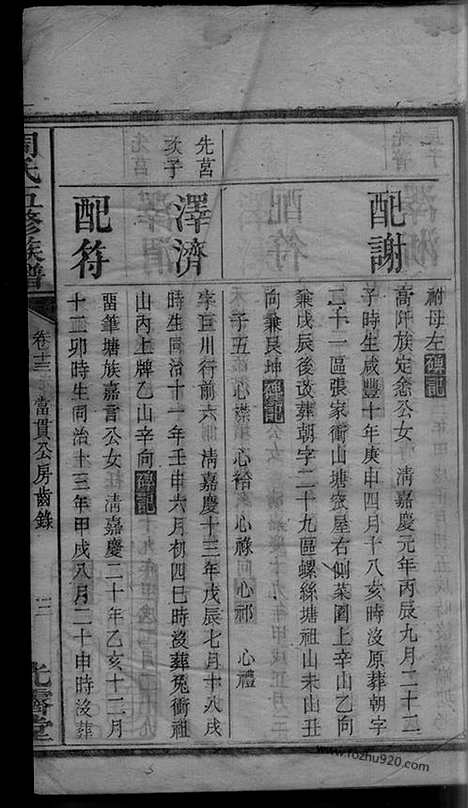 祔母左碑記
配謝
高阡族定公女 清嘉慶元年丙辰九月二十二
子時生咸豐十年庚申四月十八亥時沒原葬朝字
二十一區張家衝山塘窊屋右側菜園上辛山乙向
兼戊辰後改葬朝字二十九區螺絲塘祖山未山丑
向兼艮坤碑記
子五 心襟 心裕 心祿 心祁 心禮
先莒
次子
澤濟
字巨川行前六 清嘉慶十三年戊辰七月十八戌
時生同治十一年壬申六月初四巳時沒葬兔衝祖
山內上牌乙山辛向碑記
配符
畱筆塘族嘉言公女 清嘉慶二十年乙亥十二月
十二卯時生同治十三年甲戌八月二十申時沒葬
周氏五修族譜
卷十三
富貫公房齒錄
光霽堂
www.fozhu920.com